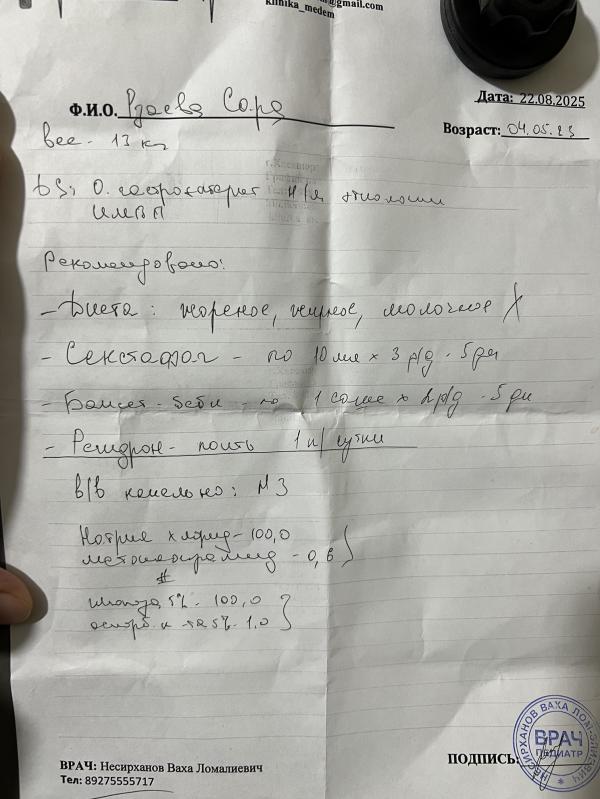 @gmail.com
klinika_medem
Дата: 22.08.2025
Ф.И.О. Рзаева Сара
Возраст: 04.05.23
Вес - 13 кг
DS: О. гастроэнтерит н/я этиологии
Рекомендовано:
- Диета: жареное, жирное, молочное X
- Секстафаг - по 10 мл x 3 р/д - 5 дн
- Баксет-беби - по 1 саше x 2 р/д - 5 дн
- Регидрон - поить 1 п/сутки
в/в капельно: N3
Натрия хлорид - 100,0
метоклопрамид - 0,6
#
глюкоза 5% - 100,0
аскорб. к-та 5% 1,0
ВРАЧ: Несирханов Ваха Ломалиевич
ПОДПИСЬ:
Тел: 89275555717
НЕСИРХАНОВ ВАХА
ВРАЧ
ПЕДИАТР